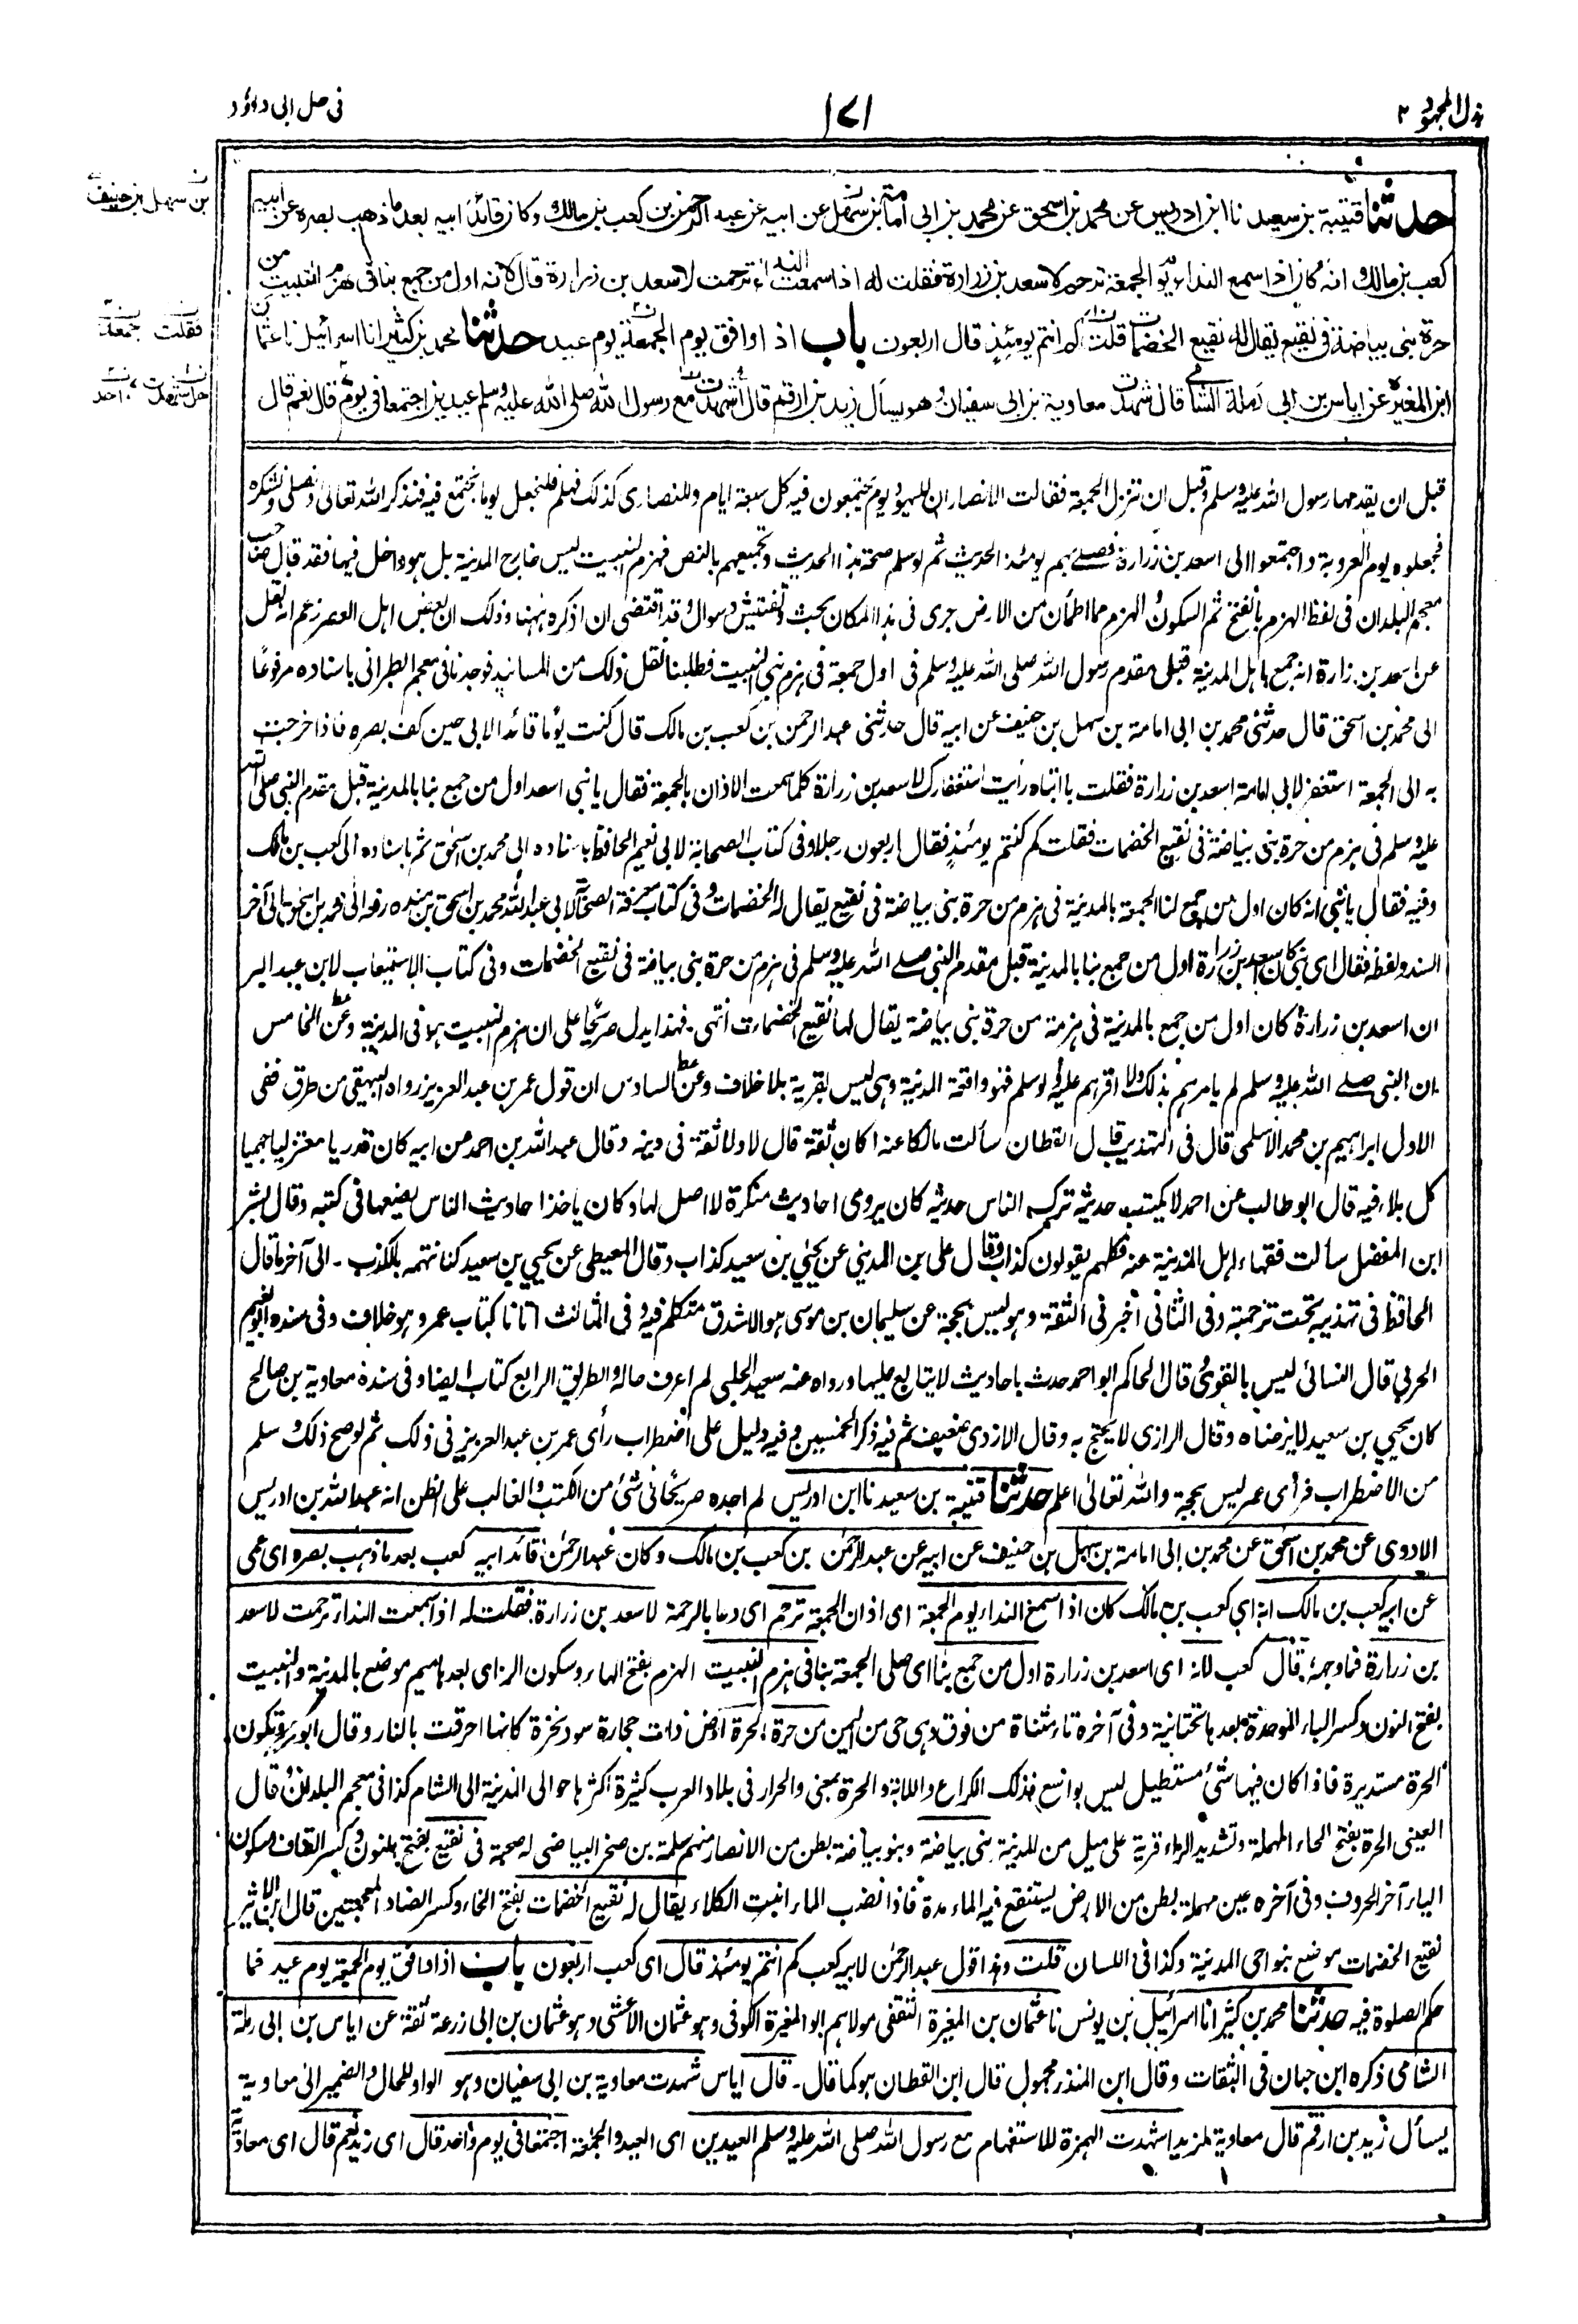 بذل المجهود ٢
١٧١
فى حل ابى داؤد
حدثنا قتيبة بن سعيد نا ابن ادريس عن محمد بن اسحق عن محمد بن ابى امامة بن سهل عن ابيه عن عبد الرحمن بن كعب بن مالك وكان قائد ابيه بعد ما ذهب بصره عن ابيه
كعب بن مالك انه كان اذا سمع النداء يوم الجمعة ترحم لاسعد بن زرارة فقلت له اذا سمعت النداء ترحمت لاسعد بن زرارة قال لانه اول من جمع بنا فى هزم النبيت من
حرة بنى بياضة فى نقيع يقال له نقيع الخضمات قلت كم انتم يومئذ قال اربعون باب اذا وافق يوم الجمعة يوم عيد حدثنا محمد بن كثير انا اسرائيل نا عثمان
ابن المغيرة عن اياس بن ابى رملة الشامى قال شهدت معاوية بن ابى سفيان وهو يسأل زيد بن ارقم قال أشهدت مع رسول الله صلى الله عليه وسلم عيدين اجتمعا فى يوم قال نعم قال
بن سهل بن حنيف
فقلت جمعة
هل شهدت واحد
قبل ان يقدمها رسول الله عليه وسلم وقبل ان تنزل الجمعة فقالت الانصار ان لليهود يوم يجتمعون فيه كل سبعة ايام وللنصارى كذلك فهلم فلنجعل يوما نجتمع فيه فنذكر الله تعالى ونصلى ونشكره
فجعلوه يوم العروبة واجتمعوا الى اسعد بن زرارة فصلے بهم يومئذ الحديث ثم لو سلم صحة هذا الحديث وتجميعهم بالنص فهزم النبيت ليس خارج المدينة بل هو داخل فيها فقد قال صاحب
معجم البلدان فى لفظ الهزم بالفتح ثم السكون الهزم مما اطمأن من الارض جرى فى هذا المكان بحث وتفتيش وسوال وقد اقتضى ان اذكره ههنا وذلك ان بعض اهل العصر زعم انه نقل
عن اسعد بن زارة انه جمع باهل المدينة قبل مقدم رسول الله صلى الله عليه وسلم فى اول جمعة فى هزم بنى النبيت فطلبنا نقل ذلك من المسانيد فوجدنا فى معجم الطبرانى باسناده مرفوعًا
الى محمد بن اسحق قال حدثنى محمد بن ابى امامة بن سهل بن حنيف عن ابيه قال حدثنى عبد الرحمن بن كعب بن مالك قال كنت يومًا قائد الابى حين كف بصره فاذا خرجت
به الى الجمعة استغفر لابى امامة اسعد بن زرارة فقلت يا ابتاه رأيت استغفارك لاسعد بن زرارة كلما سمعت الاذان بالجمعة فقال يا نبى اسعد اول من جمع بنا بالمدينة قبل مقدم النبى صلى الله
عليه وسلم فى هزم من حرة بنى بياضة فى نقيع الخضمات فقلت كم كنتم يومئذ فقال اربعون رجلا وفى كتاب الصحابة لابى نعيم الحافظ باسناده الى محمد بن اسحق ثم باسناده الى كعب بن مالك
وفيه فقال يا بنى انه كان اول من جمع لنا الجمعة بالمدينة فى هزم من حرة بنى بياضة فى نقيع يقال له الخضمات وفى كتاب معرفة الصحابة لابى عبد الله محمد بن اسحق بن منده رفعه الى محمد بن اسحق الى آخر
السند ولفظه فقال اى بنى كان اسعد بن زرارة اول من جمع بنا بالمدينة قبل مقدم النبى صلے الله عليه وسلم فى هزم من حرة بنى بياضة فى نقيع الخضمات وفى كتاب الاستيعاب لابن عبد البر
ان اسعد بن زرارة كان اول من جمع بالمدينة فى هزمة من حرة بنى بياضة يقال لها نقيع الخضمات انتهى۔ فهذا يدل صريحًا على ان هزم النبيت هو فى المدينة وعن الخامس
ان النبى صلے الله عليه وسلم لم يامرهم بذلك ولا اقرهم عليه ولو سلم فهو واقعة المدينة وهى ليس بقرية بلا خلاف وعن السادس ان قول عمر بن عبد العزيز رواه البيهقى من طرق ففى
الاول ابراهيم بن محمد الاسلمى قال فى التهذيب قال القطان سألت مالكا عنه اكان ثقة قال لا ولا ثقة فى دينه وقال عبد الله بن احمد من ابيه كان قدريا معتزليا جهميا
كل بلاء فيه قال ابو طالب عن احمد لا يكتب حديثه ترك الناس حديثه كان يروى احاديث منكرة لا اصل لها وكان ياخذ احاديث الناس يضعها فى كتبه وقال بشر
ابن المفضل سألت فقهاء اهل المدينة عنه فكلهم يقولون كذاب وقال على بن المدينى عن يحيى بن سعيد كذاب وقال المعيطى عن يحيى بن سعيد كنا نتهمه بالكذب۔ الى آخر ما قال
الحافظ فى تهذيبه تحت ترجمته وفى الثانى أخبرنى الثقة وهو ليس بحجة عن سليمان بن موسى هو الاشدق متكلم فيه وفى الثالث اتانا كتاب عمر وهو خلاف وفى سنده ابراهيم
الحربى قال النسائى ليس بالقوى قال الحاكم ابو احمد حدث باحاديث لا يتابع عليها ورواه عنه سعيد الحلبى لم اعرف حاله والطريق الرابع كتاب ايضا وفى سنده معاوية بن صالح
كان يحيى بن سعيد لا يرضاه وقال الرازى لا يحتج به وقال الازدى ضعيف ثم فيه ذكر الخمسين وفيه دليل على اضطراب رأى عمر بن عبد العزيز فى ذلك ثم لو صح ذلك وسلم
من الاضطراب فرأى عمر ليس بحجة والله تعالى اعلم حدثنا قتيبة بن سعيد نا ابن ادريس لم اجده صريحًا فى شئ من الكتب والغالب على الظن انه عبد الله بن ادريس
الاودى عن محمد بن اسحق عن محمد بن ابى امامة بن سهل بن حنيف عن ابيه عن عبد الرحمن بن كعب بن مالك وكان عبد الرحمن قائد ابيه كعب بعد ما ذهب بصره اى عمى
عن ابيه كعب بن مالك انه اى كعب بن مالك كان اذا سمع النداء يوم الجمعة اى اذان الجمعة ترحم اى دعا بالرحمة لاسعد بن زرارة فقلت له اذا سمعت النداء ترحمت لاسعد
بن زرارة فما وجهه قال كعب لانه اى اسعد بن زرارة اول من جمع بنا اى صلى الجمعة بنا فى هزم النبيت الهزم بفتح الهاء وسكون الزاى بعدها ميم موضع بالمدينة والنبيت
بفتح النون وكسر الباء الموحدة وبعدها تحتانية وفى آخره تاء مثناة من فوق وهى حى من اليمن من حرة الحرة ارض ذات حجارة سود نخرة كانها احرقت بالنار وقال ابو عمرو تكون
الحرة مستديرة فاذا كان فيها شئ مستطيل ليس بواسع فذلك الكراع واللابة والحرة بمعنى والحرار فى بلاد العرب كثيرة اكثرها حوالى المدينة الى الشام كذا فى معجم البلدان قال
العينى الحرة بفتح الحاء المهملة وتشديد الراء قرية على ميل من المدينة بنى بياضة وبنو بياضة بطن من الانصار منهم سلمة بن صخر البياضى له صحبة فى نقيع بفتح النون وكسر القاف وسكون
الياء آخر الحروف وفى آخره عين مهملة بطن من الارض يستنقع فيه الماء مدة فاذا نضب الماء انبت الكلاء يقال له نقيع الخضمات بفتح الخاء وكسر الضاد المعجمتين قال ابن الاثير
نقيع الخضمات موضع بنواحى المدينة وكذا فى اللسان قلت وهذا قول عبد الرحمن لابيه كعب كم انتم يومئذ قال اى كعب اربعون باب اذا وافق يوم الجمعة يوم عيد فما
حكم الصلوة فيه حدثنا محمد بن كثير انا اسرائيل بن يونس نا عثمان بن المغيرة الثقفى مولاهم ابو المغيرة الكوفى وهو عثمان الأعشى وهو عثمان بن ابى زرعة ثقة عن اياس بن ابى رملة
الشامى ذكره ابن حبان فى الثقات وقال ابن المنذر مجهول قال ابن القطان هو كما قال۔ قال اياس شهدت معاوية بن ابى سفيان وهو الواو للحال والضمير الى معاوية
يسأل زيد بن ارقم قال معاوية لزيد اشهدت الهمزة للاستفهام مع رسول الله صلى الله عليه وسلم العيدين اى العيد والجمعة اجتمعا فى يوم واحد قال اى زيد نعم قال اى معاوية